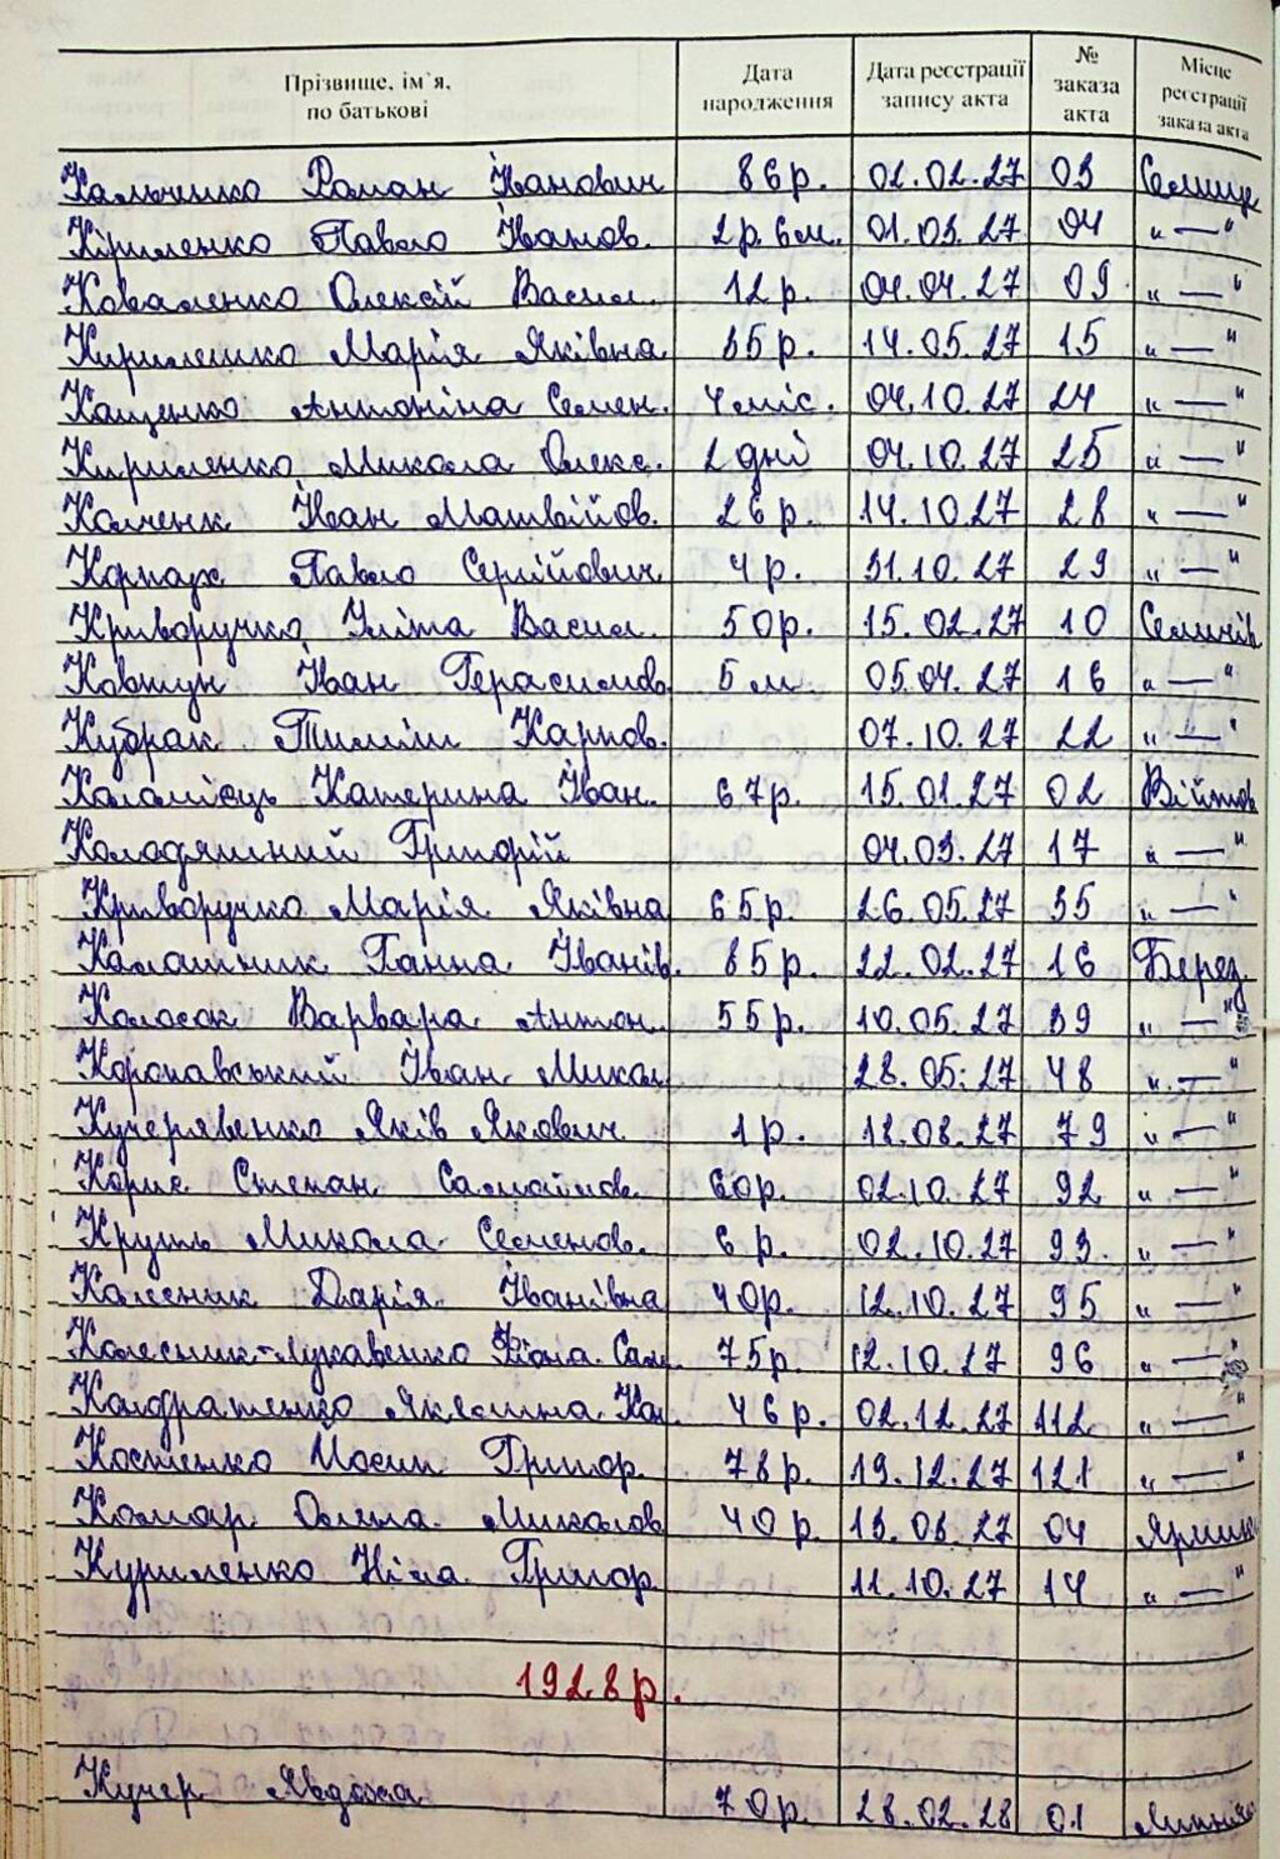 Прізвище, ім`я, по батькові Дата народження Дата реєстрації запису акта № заказа акта Місце реєстрації заказа акта
Кальченко Роман Іванович 86р. 02.02.27 03 Селище
Кіриленко Павло Іванов. 2р. 6м. 01.03.27 04 "—"
Коваленко Олексій Васил. 12р. 04.04.27 09 "—"
Кириленко Марія Яківна 35р. 14.05.27 15 "—"
Кащенко Антоніна Семен. 4міс. 04.10.27 24 "—"
Кириленко Микола Олекс. 2 дні 04.10.27 25 "—"
Калченк Іван Матвійов. 26р. 14.10.27 28 "—"
Корпач Павло Сергійович 4р. 31.10.27 29 "—"
Криворучко Уліта Васил. 50р. 15.02.27 10 Селичів
Ковтун Іван Герасимов. 5 м. 05.04.27 16 "—"
Кубрак Тиміш Карпов. 07.10.27 22 "—"
Коломієць Катерина Іван. 67р. 15.01.27 02 Війтов
Колодяжний Григорій 04.03.27 17 "—"
Криворучко Марія Яківна 65р. 26.05.27 35 "—"
Калашник Ганна Іванів. 85р. 22.02.27 16 Берез.
Колосок Варвара Антон. 55р. 10.05.27 39 "—"
Іван Микол 28.05.27 48 "—"
Кучерявенко Яків Якович 1р. 18.08.27 79 "—"
Степан 60р. 02.10.27 92 "—"
Круть Микола Семенов. 6р. 02.10.27 93 "—"
Калєник Дарія Іванівна 40р. 12.10.27 95 "—"
Колесник-Лукавенко Сам. 75р. 12.10.27 96 "—"
Кондратенко Якелина Кон. 46р. 02.12.27 112 "—"
Костенко Йосип Григор. 78р. 19.12.27 121 "—"
Комар Олена Миколов 40р. 13.08.27 04
Куриленко Ніла Григор. 11.10.27 14 "—"
1928р.
Кучер Явдоха 70р. 28.02.28 01